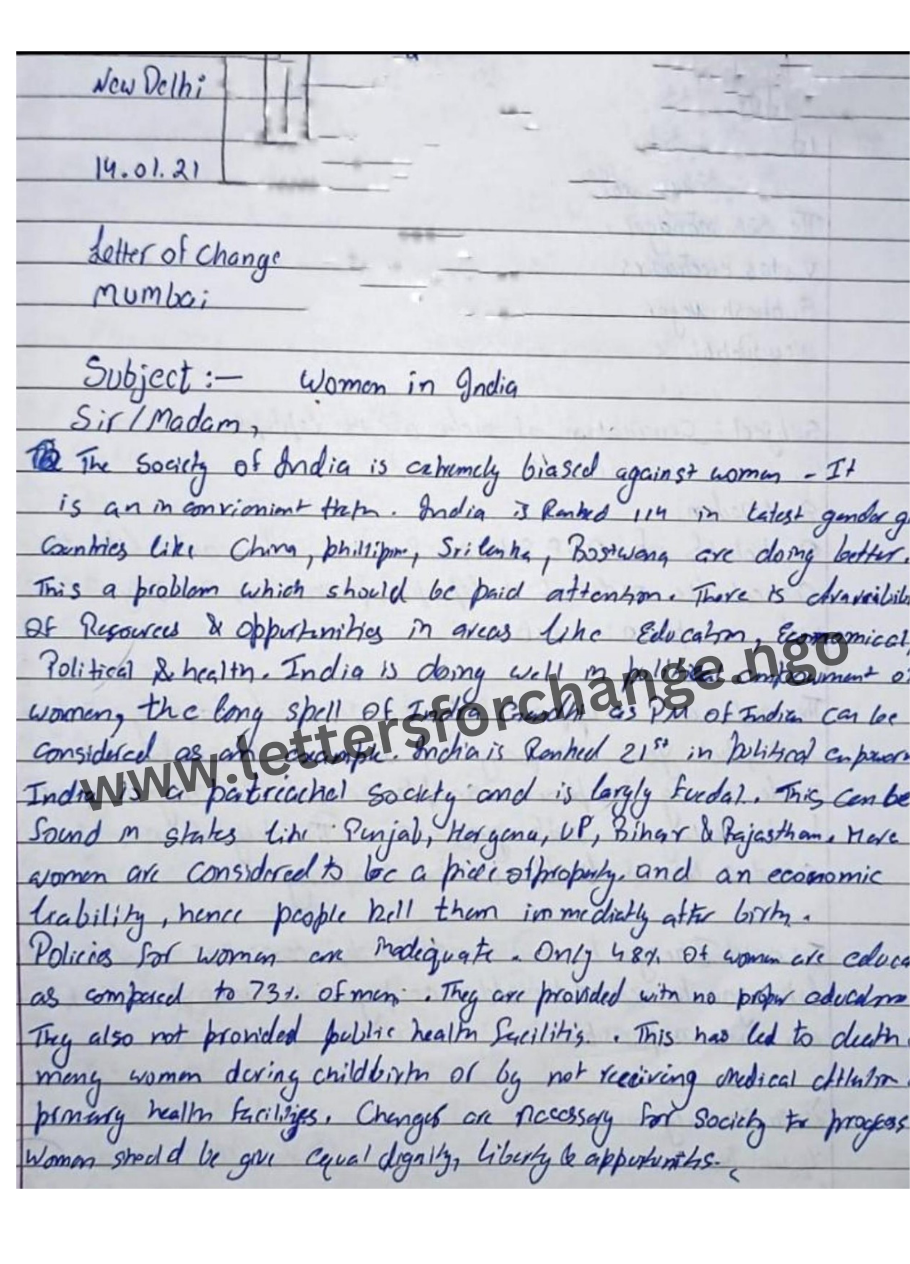 New Delhi
14.01.21
Letter of Change
Mumbai
Subject :- Women in India
Sir/Madam,
The Society of India is extremely biased against women - It
is an inconvionint truth. India is Ranked 114 in latest gender g
Countries like China, phillipine, Sri lanka, Bostwana are doing better.
This a problem which should be paid attention. There is
Of Resources & oppurtunities in areas like Education, Economical,
Political & health. India is doing well in political empowment o
women, the long spell of Indira Gandhi as PM of Indian can be
considered as an example. India is Ranked 21st in political empower
India is a patreachel society and is largly fuedal. This can be
found in states like Punjab, Haryana, UP, Bihar & Rajasthan. Here
women are considered to be a piece of property. and an economic
liability, hence people kell them immediatly after birth.
Policies for women are inadequate. Only 48% of women are educa
as compared to 73% of men. They are provided with no proper
They also not provided public health facilitis. This has led to death
many women during childbirth or by not receiving medical
primary health facilities. Changes are necessary for Society to progress
Women should be give equal dignity, liberty &
www.lettersforchange.ngo